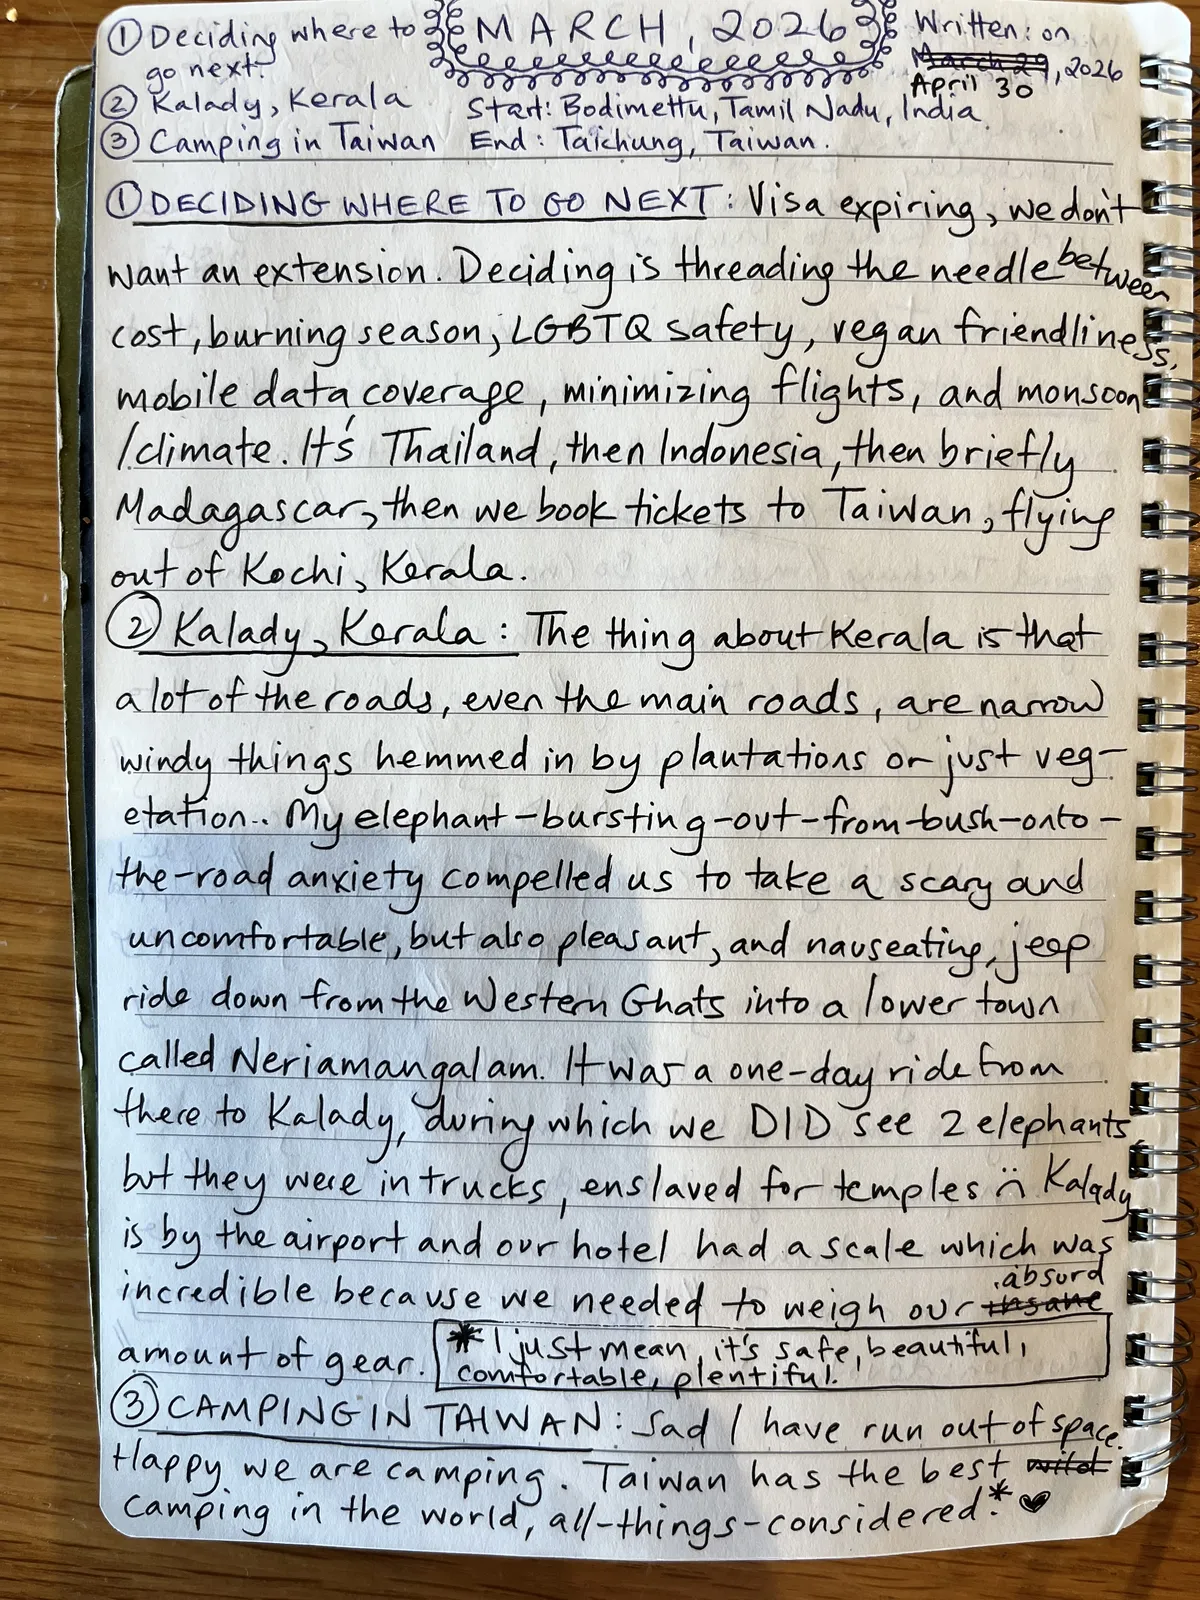 ① Deciding where to
go next.
② Kalady, Kerala
③ Camping in Taiwan
MARCH, 2026
Start: Bodimettu, Tamil Nadu, India.
End: Taichung, Taiwan.
Written: on
March 29, 2026
April 30
① DECIDING WHERE TO GO NEXT: Visa expiring, we don't
want an extension. Deciding is threading the needle between
cost, burning season, LGBTQ safety, vegan friendliness,
mobile data coverage, minimizing flights, and monsoon
/climate. It's Thailand, then Indonesia, then briefly
Madagascar, then we book tickets to Taiwan, flying
out of Kochi, Kerala.
② Kalady, Kerala: The thing about Kerala is that
a lot of the roads, even the main roads, are narrow
windy things hemmed in by plantations or just veg-
etation.. My elephant-bursting-out-from-bush-onto-
the-road anxiety compelled us to take a scary and
uncomfortable, but also pleasant, and nauseating, jeep
ride down from the Western Ghats into a lower town
called Neriamangalam. It was a one-day ride from
there to Kalady, during which we DID see 2 elephants,
but they were in trucks, enslaved for temples :( Kalady
is by the airport and our hotel had a scale which was
incredible because we needed to weigh our insane absurd
amount of gear.
* I just mean, it's safe, beautiful,
comfortable, plentiful.
③ CAMPING IN TAIWAN: Sad I have run out of space.
Happy we are camping. Taiwan has the best wild
camping in the world, all-things-considered.* ♥